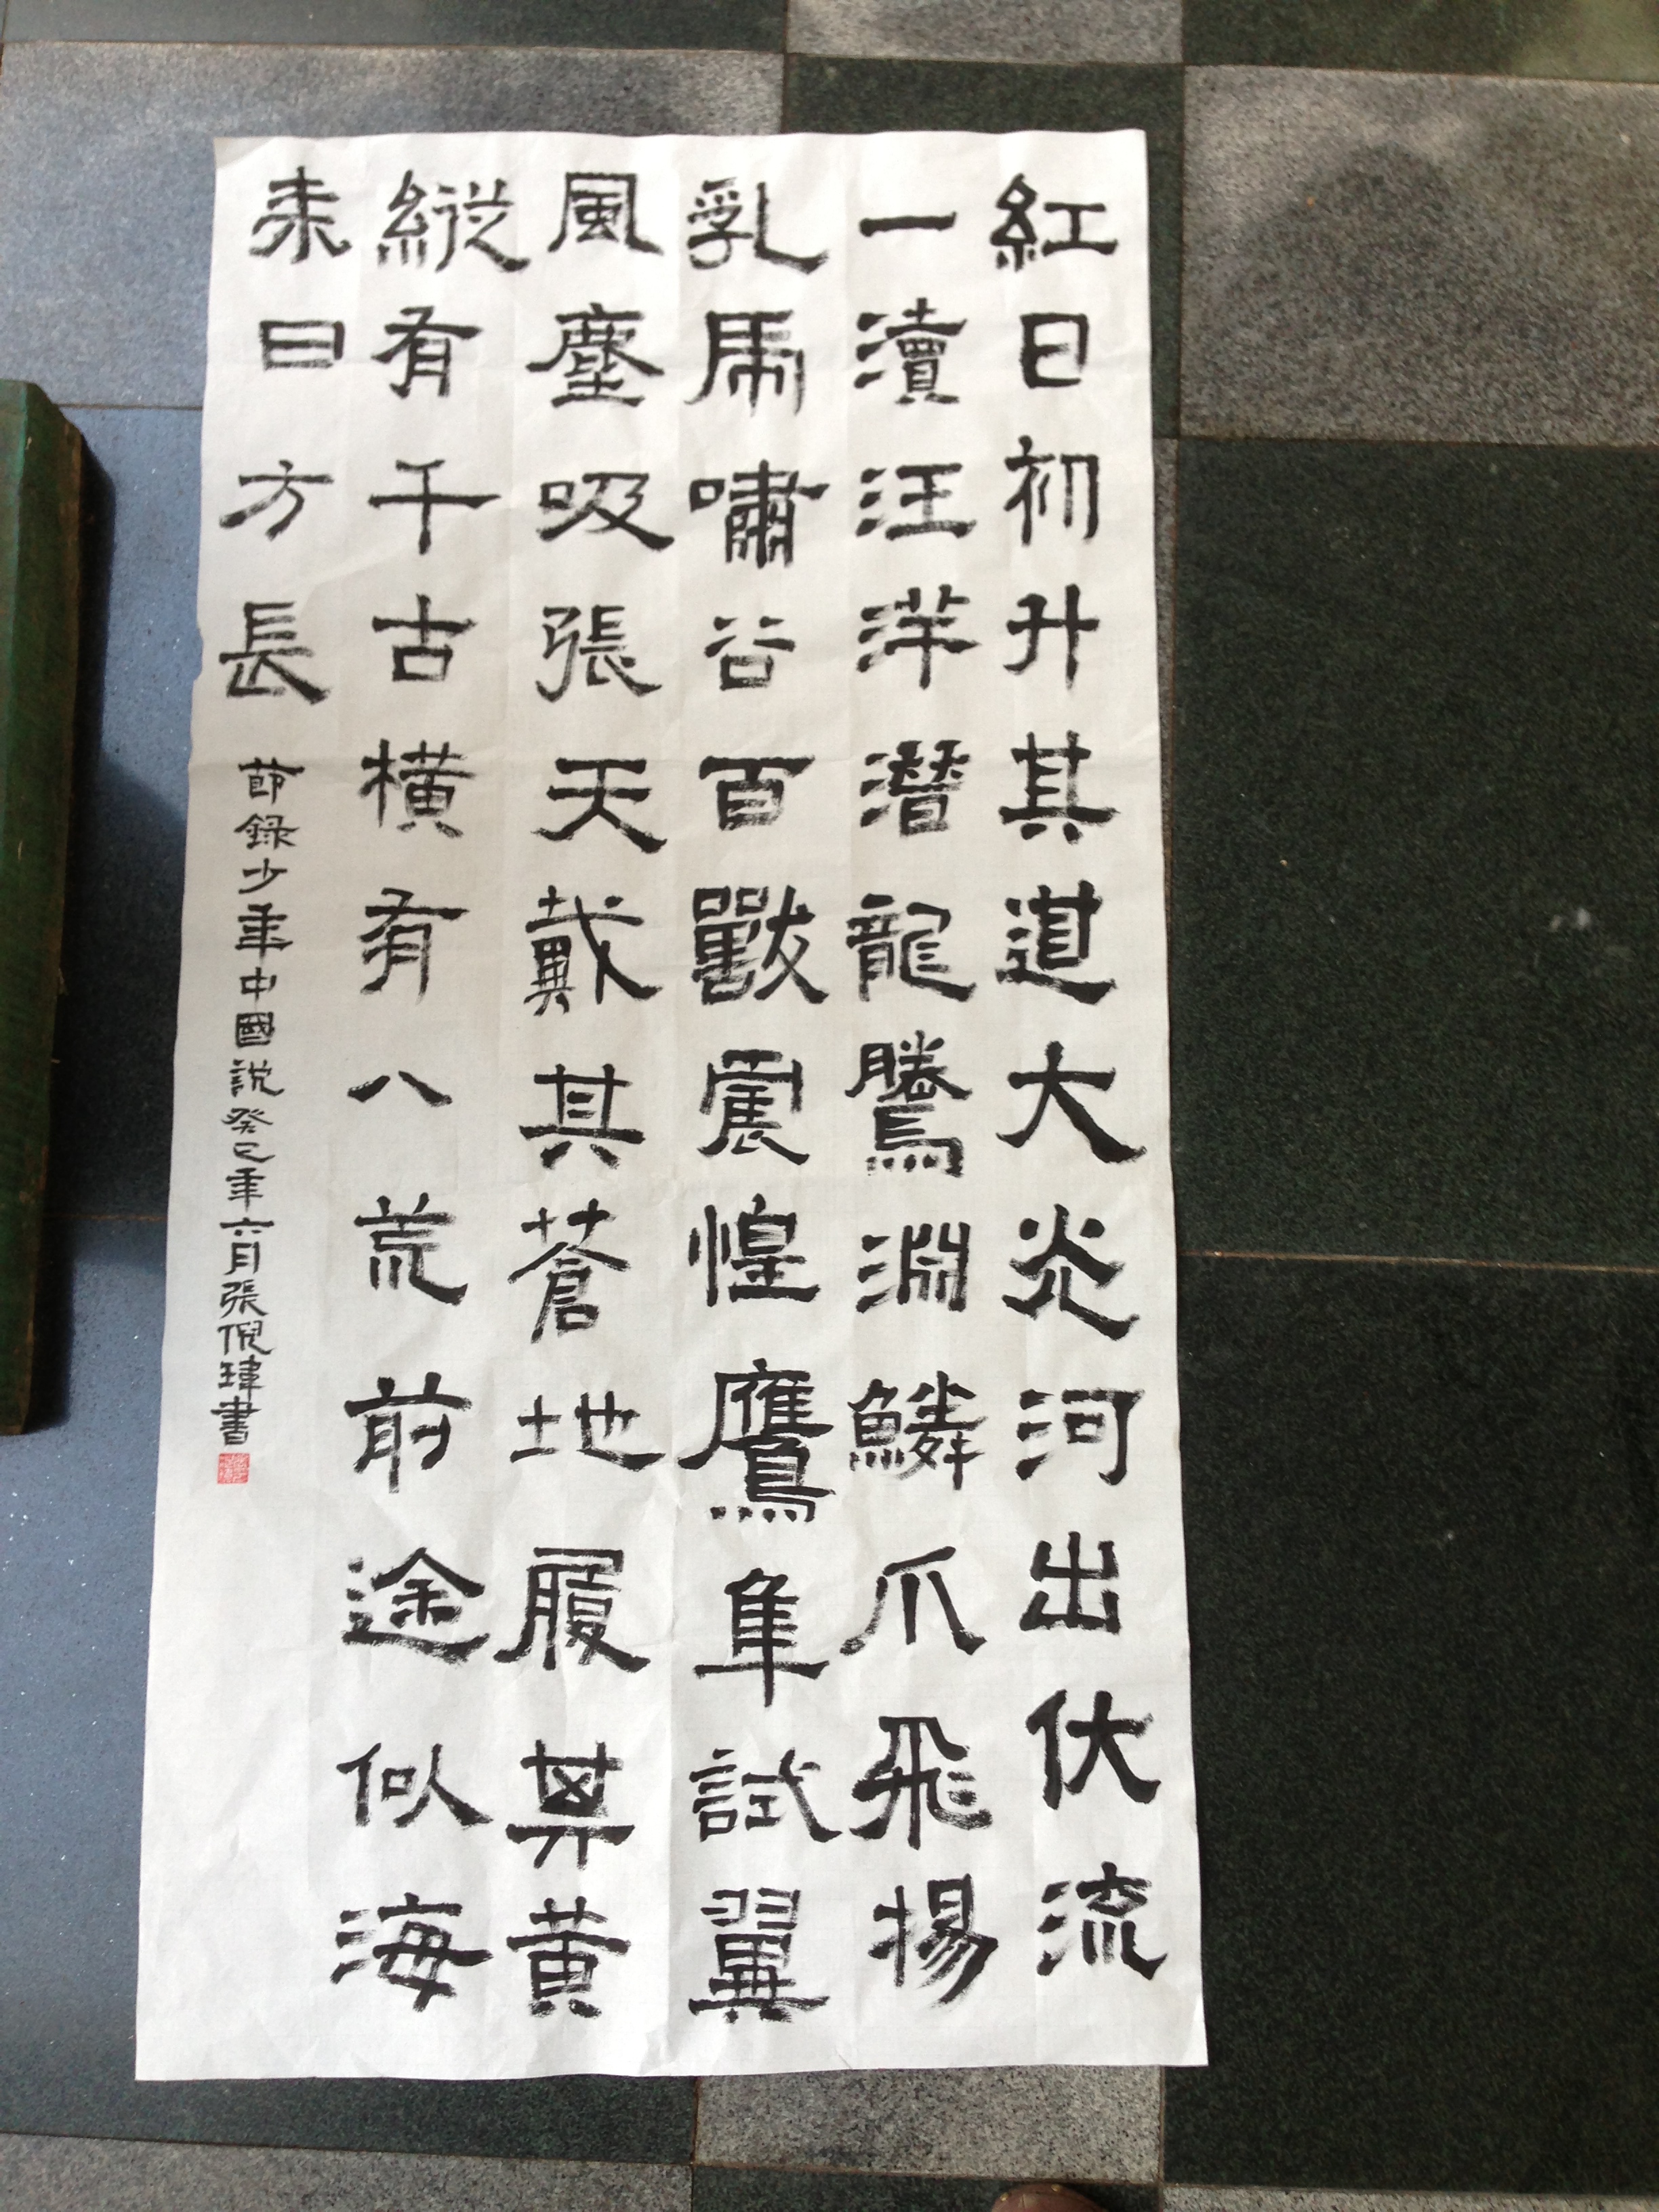 紅日初升其道大炎河出伏流
一瀉汪洋潛龍騰淵鱗爪飛揚
乳虎嘯谷百獸震惶鷹隼試翼
風塵吸張天戴其蒼地履其黃
縱有千古橫有八荒前途似海
来日方長
節錄少年中國說癸巳年六月張倪瑋書